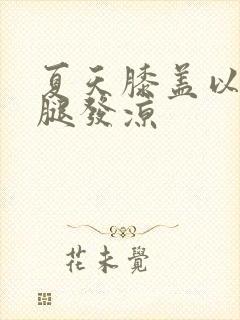 夏天膝盖以
腿發凉
花未覺